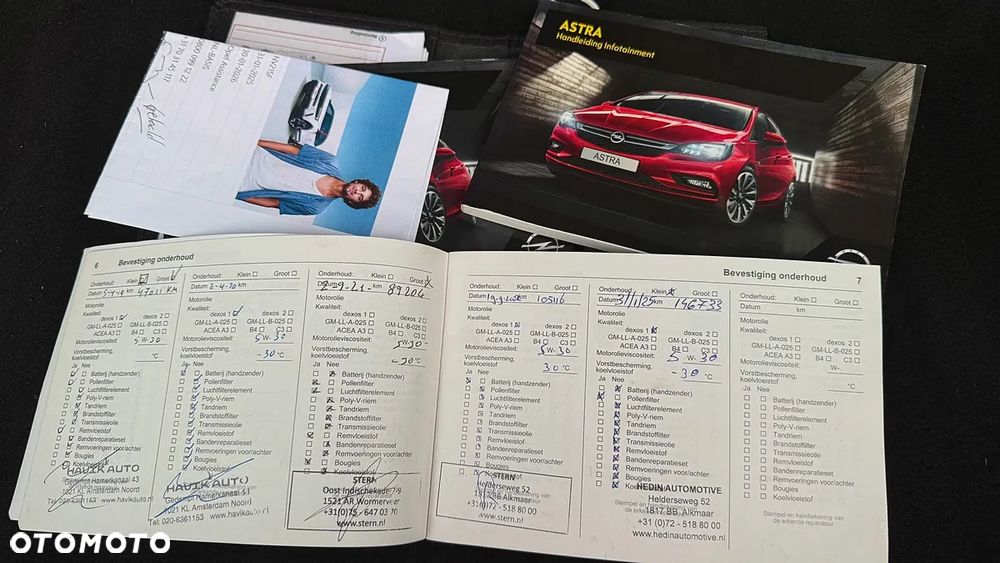 ASTRA
Handleiding Infotainment
ASTRA
NV215F
31-01-2025
30-01-2026
Opel Assistance
NL-BASIS
0800 099 12 22
6 Bevestiging onderhoud
Onderhoud: Klein Groot
Datum km
47011 KM
Motorolie
Kwaliteit:
dexos 1 dexos 2
GM-LL-A-025 GM-LL-B-025
ACEA A3 B4 C3
Motorolieviscositeit: 5 W-30
Vorstbescherming, koelvloeistof -30 °C
Ja Nee
Batterij (handzender)
Pollenfilter
Luchtfilterelement
Poly-V-riem
Tandriem
Brandstoffilter
Transmissieolie
Remvloeistof
Bandenreparatieset
Remvoeringen voor/achter
Bougies
Koelvloeistof
HAVIK AUTO
Gedempt Hamerkanaal 43
1021 KL Amsterdam Noord
Tel: 020-6361153 www.havikauto.nl
Onderhoud: Klein Groot
Datum 2-4-20 km
Motorolie
Kwaliteit:
dexos 1 dexos 2
GM-LL-A-025 GM-LL-B-025
ACEA A3 B4 C3
Motorolieviscositeit: 5 W-30
Vorstbescherming, koelvloeistof -30 °C
Ja Nee
Batterij (handzender)
Pollenfilter
Luchtfilterelement
Poly-V-riem
Tandriem
Brandstoffilter
Transmissieolie
Remvloeistof
Bandenreparatieset
Remvoeringen voor/achter
Bougies
Koelvloeistof
HAVIK AUTO
Gedempt Hamerkanaal 43
1021 KL Amsterdam Noord
Tel: 020-6361153 www.havikauto.nl
Onderhoud: Klein Groot
-9-21- km 89204
Motorolie
Kwaliteit:
dexos 1 dexos 2
GM-LL-A-025 GM-LL-B-025
ACEA A3 B4 C3
Motorolieviscositeit: 5W-30-
Vorstbescherming, koelvloeistof
Ja Nee
Batterij (handzender)
Pollenfilter
Luchtfilterelement
Poly-V-riem
Tandriem
Brandstoffilter
Transmissieolie
Remvloeistof
Bandenreparatieset
Remvoeringen voor/achter
Bougies
STERN
Oost Indischekade 7-9
1521 AR Wormerveer
+31(0)75 - 647 03 70
www.stern.nl
Bevestiging onderhoud 7
Onderhoud: Klein Groot
Datum km 105116
Motorolie
Kwaliteit:
dexos 1 dexos 2
GM-LL-A-025 GM-LL-B-025
ACEA A3 B4 C3
Motorolieviscositeit: 5 W-30
Vorstbescherming, koelvloeistof 30 °C
Ja Nee
Batterij (handzender)
Pollenfilter
Luchtfilterelement
Poly-V-riem
Tandriem
Brandstoffilter
Transmissieolie
Remvloeistof
Bandenreparatieset
Remvoeringen voor/achter
Bougies
Koelvloeistof
STERN
Helderseweg 52
1817 BB Alkmaar
+31 (0)72 - 518 80 00
www.stern.nl
Onderhoud: Klein Groot
Datum 31/1/25 km 146733
Motorolie
Kwaliteit:
dexos 1 dexos 2
GM-LL-A-025 GM-LL-B-025
ACEA A3 B4 C3
Motorolieviscositeit: 5 W-30
Vorstbescherming, koelvloeistof -30 °C
Ja Nee
Batterij (handzender)
Pollenfilter
Luchtfilterelement
Poly-V-riem
Tandriem
Brandstoffilter
Transmissieolie
Remvloeistof
Bandenreparatieset
Remvoeringen voor/achter
Bougies
HEDIN AUTOMOTIVE
Helderseweg 52
1817 BB Alkmaar
+31 (0)72 - 518 80 00
www.hedinautomotive.nl
Onderhoud: Klein Groot
Datum km
Motorolie
Kwaliteit:
dexos 1 dexos 2
GM-LL-A-025 GM-LL-B-025
ACEA A3 B4 C3
Motorolieviscositeit: W-
Vorstbescherming, koelvloeistof °C
Ja Nee
Batterij (handzender)
Pollenfilter
Luchtfilterelement
Poly-V-riem
Tandriem
Brandstoffilter
Transmissieolie
Remvloeistof
Bandenreparatieset
Remvoeringen voor/achter
Bougies
Koelvloeistof
Stempel en handtekening van
de erkende reparateur
OTOMOTO